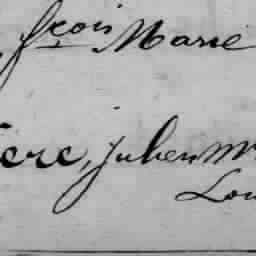 fçois Marie
ere, Julien M
Lou